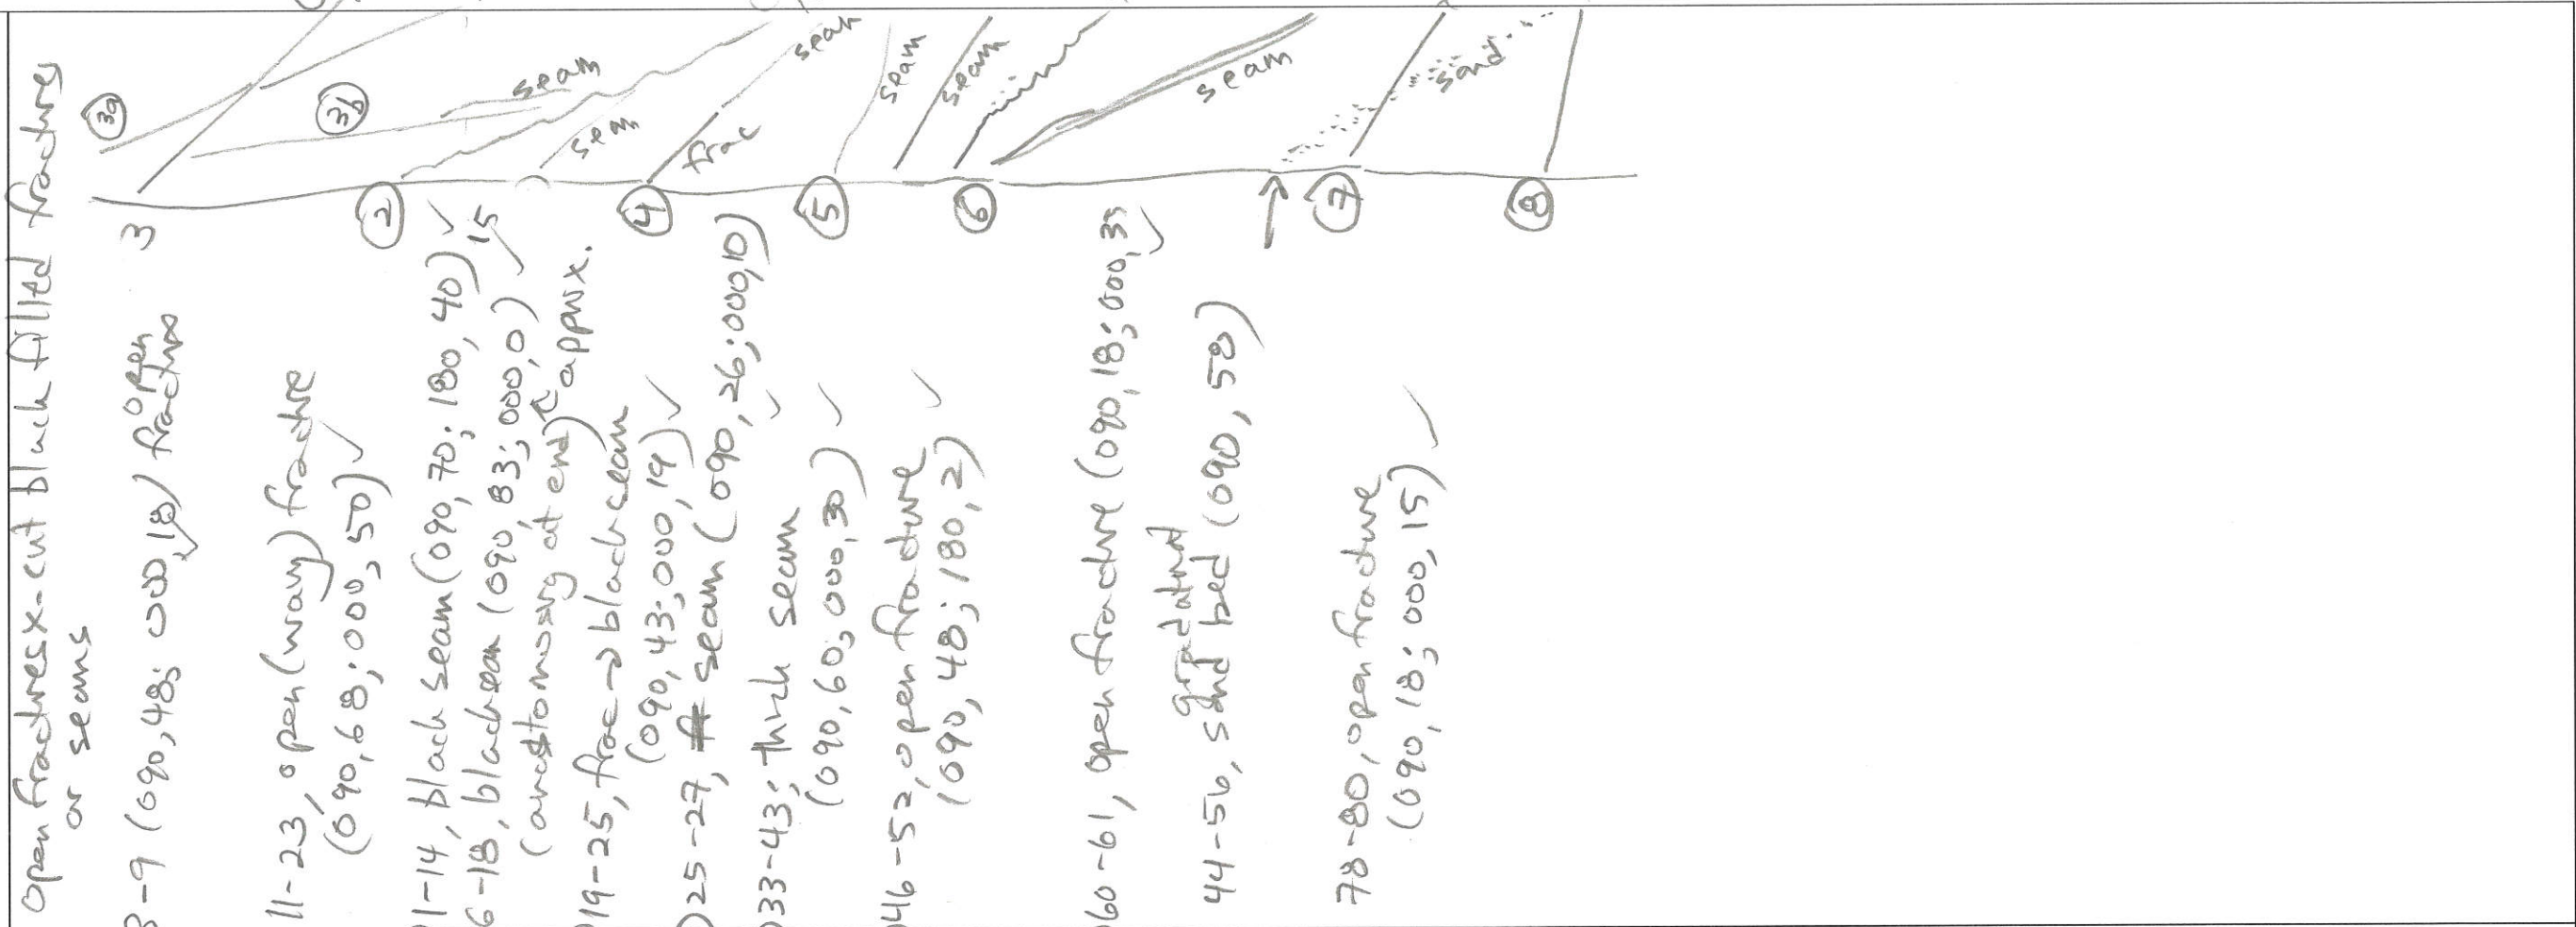 open fractures x-cut black filled fractures
or seams
3-9 (090,48; 000,18) open
fracture
11-23, open (wavy) fracture
(090,68; 000,50)
1-14, black seam (090,70; 180,40)
15
6-18, black seam (090,83; 000,0)
(anastomosing at end) approx.
19-25, frac → black seam
(090,43; 000,19)
25-27, seam (090,26; 000,10)
33-43; thick seam
(090,60; 000,30)
46-52, open fracture
(090,48; 180,2)
60-61, open fracture (090,18; 000,35
gradational
44-56, sand bed (090,58)
78-80, open fracture
(090,18; 000,15)
3a
3b
seam
seam
seam
frac
seam
seam
seam
sand
3
2
4
5
6
7
8